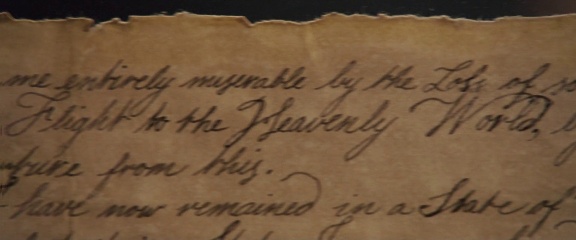 me entirely miserable by the Loss of
Flight to the Heavenly World,
from this.
have now remained in a State of